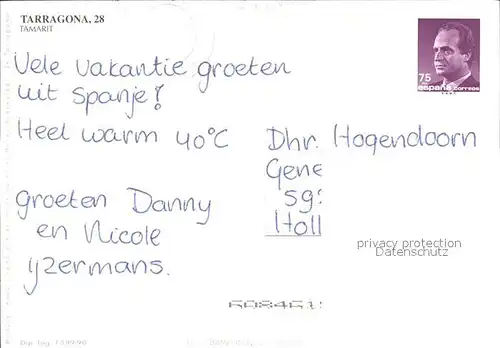 TARRAGONA, 28
TAMARIT
Vele vakantie groeten
uit Spanje!
Heel warm 40°C
groeten Danny
en Nicole
yzermans.
75
españa correos
Dhr. Hogendoorn
Gene
Holl
privacy protection
Datenschutz